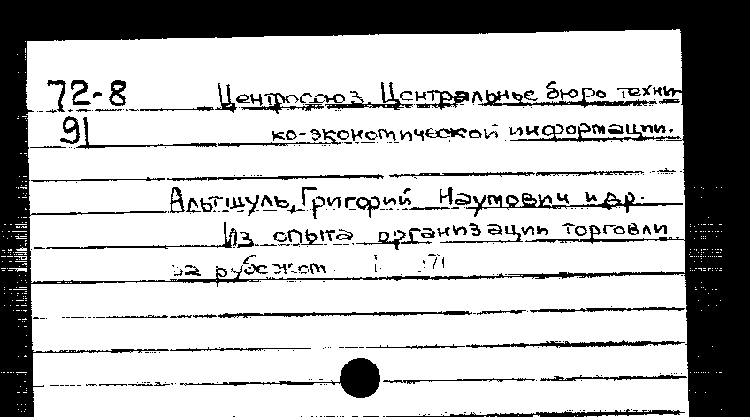 72-8 Центросоюз Центральное бюро техни-
91 ко-экономической информации.
Альтшуль, Григорий Наумович и др.
Из опыта организации торговли
за рубежом